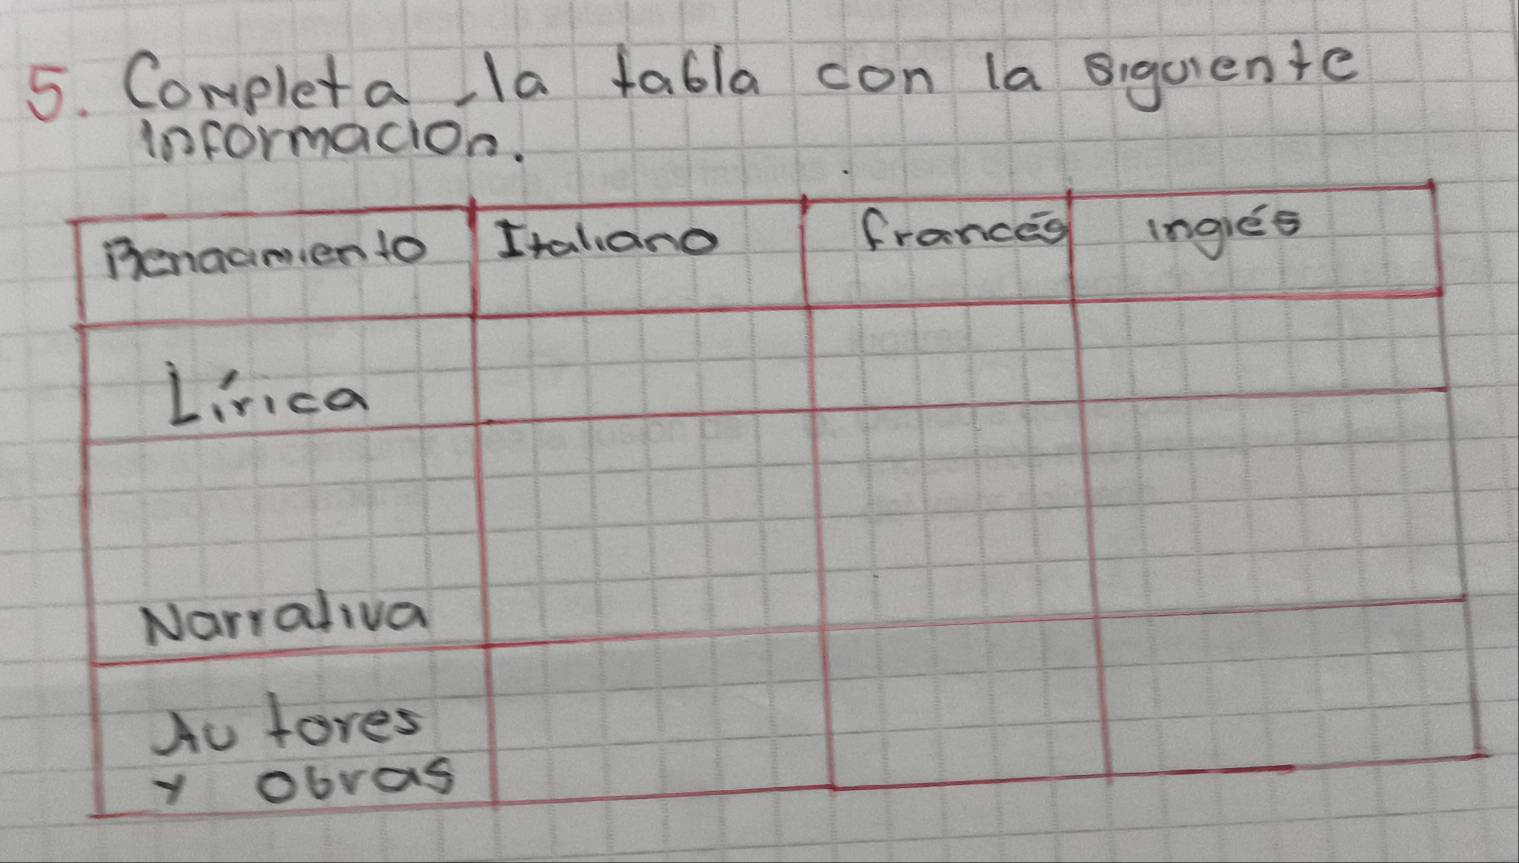 5. Completa la tabla con la siguiente
informacion.
Renacimiento Italiano francés inglés
Lírica
Narrativa
Autores
y obras